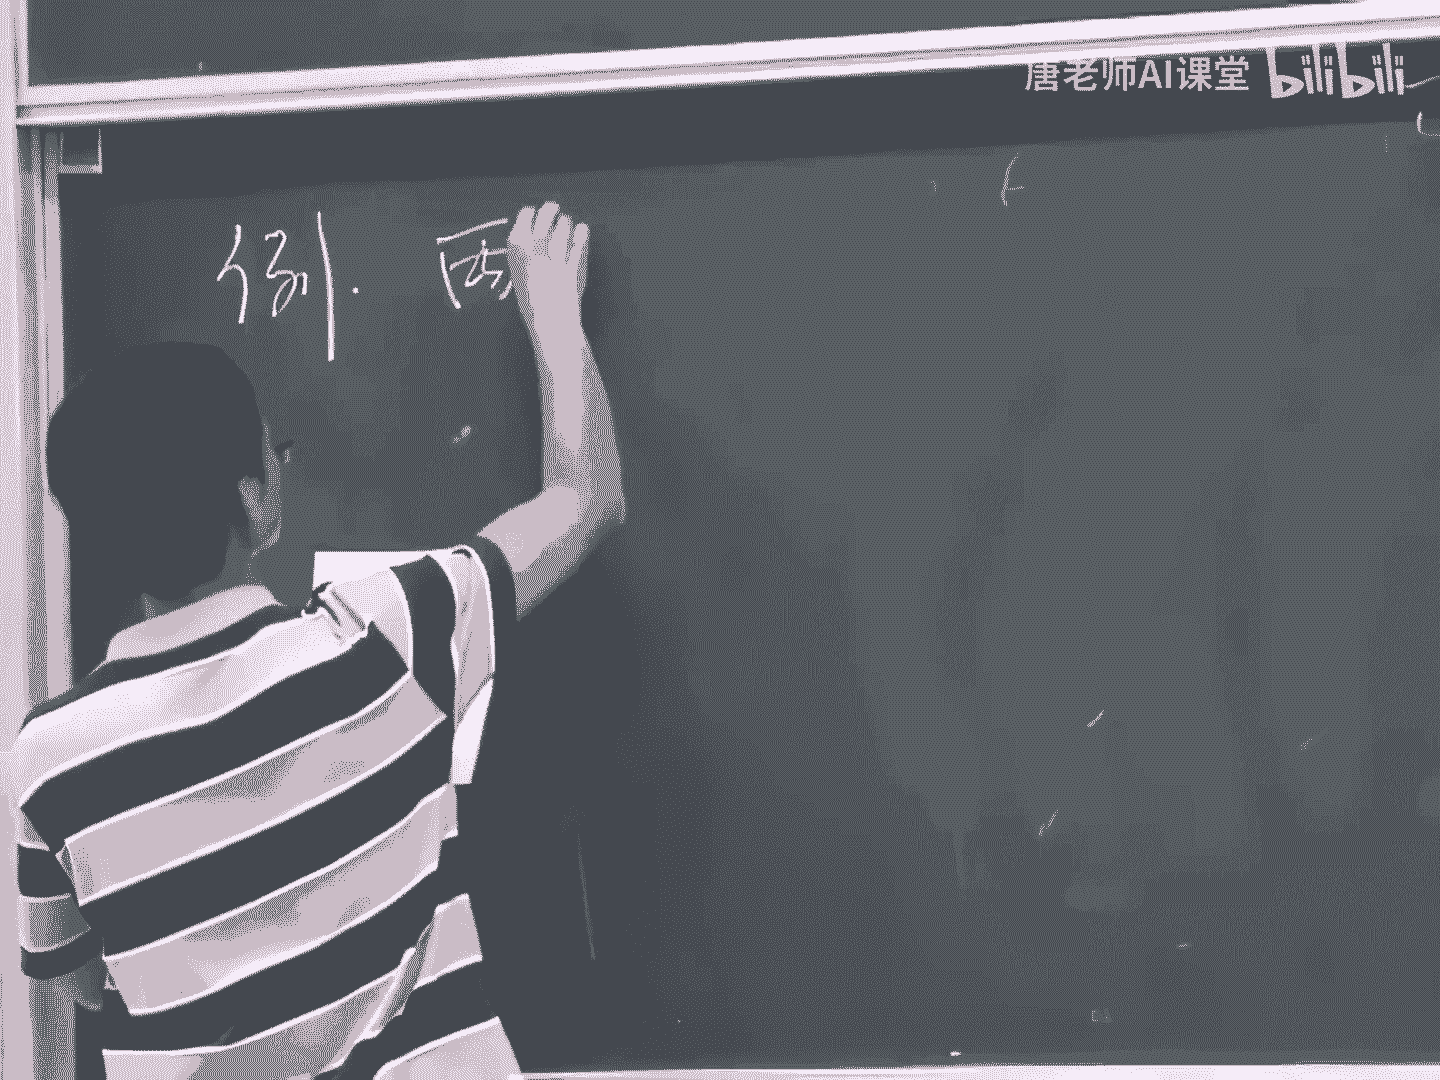 唐老师AI课堂 bilibili
例. 西